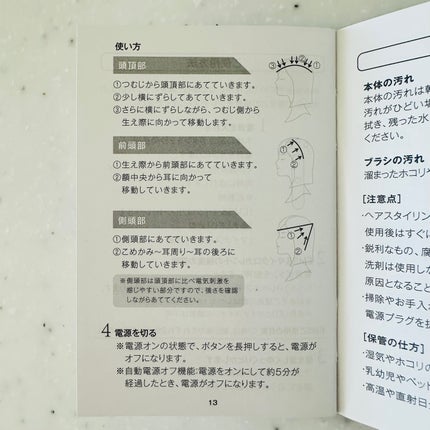 使い方
頭頂部
①つむじから頭頂部にあてていきます。
②少し横にずらしてあてます。
③さらに横にずらしながら、つむじ側から
生え際に向かって移動します。
③ ② ①
前頭部
①生え際から前頭部にあてていきます。
②額中央から耳に向かって
移動していきます。
①
②
側頭部
①側頭部にあてていきます。
②こめかみ〜耳周り〜耳の後ろに
移動していきます。
①
②
※側頭部は頭頂部に比べ電気刺激を
感じやすい部分ですので、強さを確認
しながらあててください。
4 電源を切る
※電源オンの状態で、ボタンを長押しすると、電源が
オフになります。
※自動電源オフ機能:電源をオンにして約5分が
経過したとき、電源がオフになります。
13
本体の汚れ
本体の汚れは乾
汚れがひどい場
拭き、残った水
ください。
ブラシの汚れ
溜まったホコリや
[注意点]
・ヘアスタイリン
使用後はすぐに
・鋭利なもの、腐
洗剤は使用し
原因となること
・掃除やお手入
電源プラグを抜
[保管の仕方]
・湿気やホコリの
・乳幼児やペット
・高温や直射日